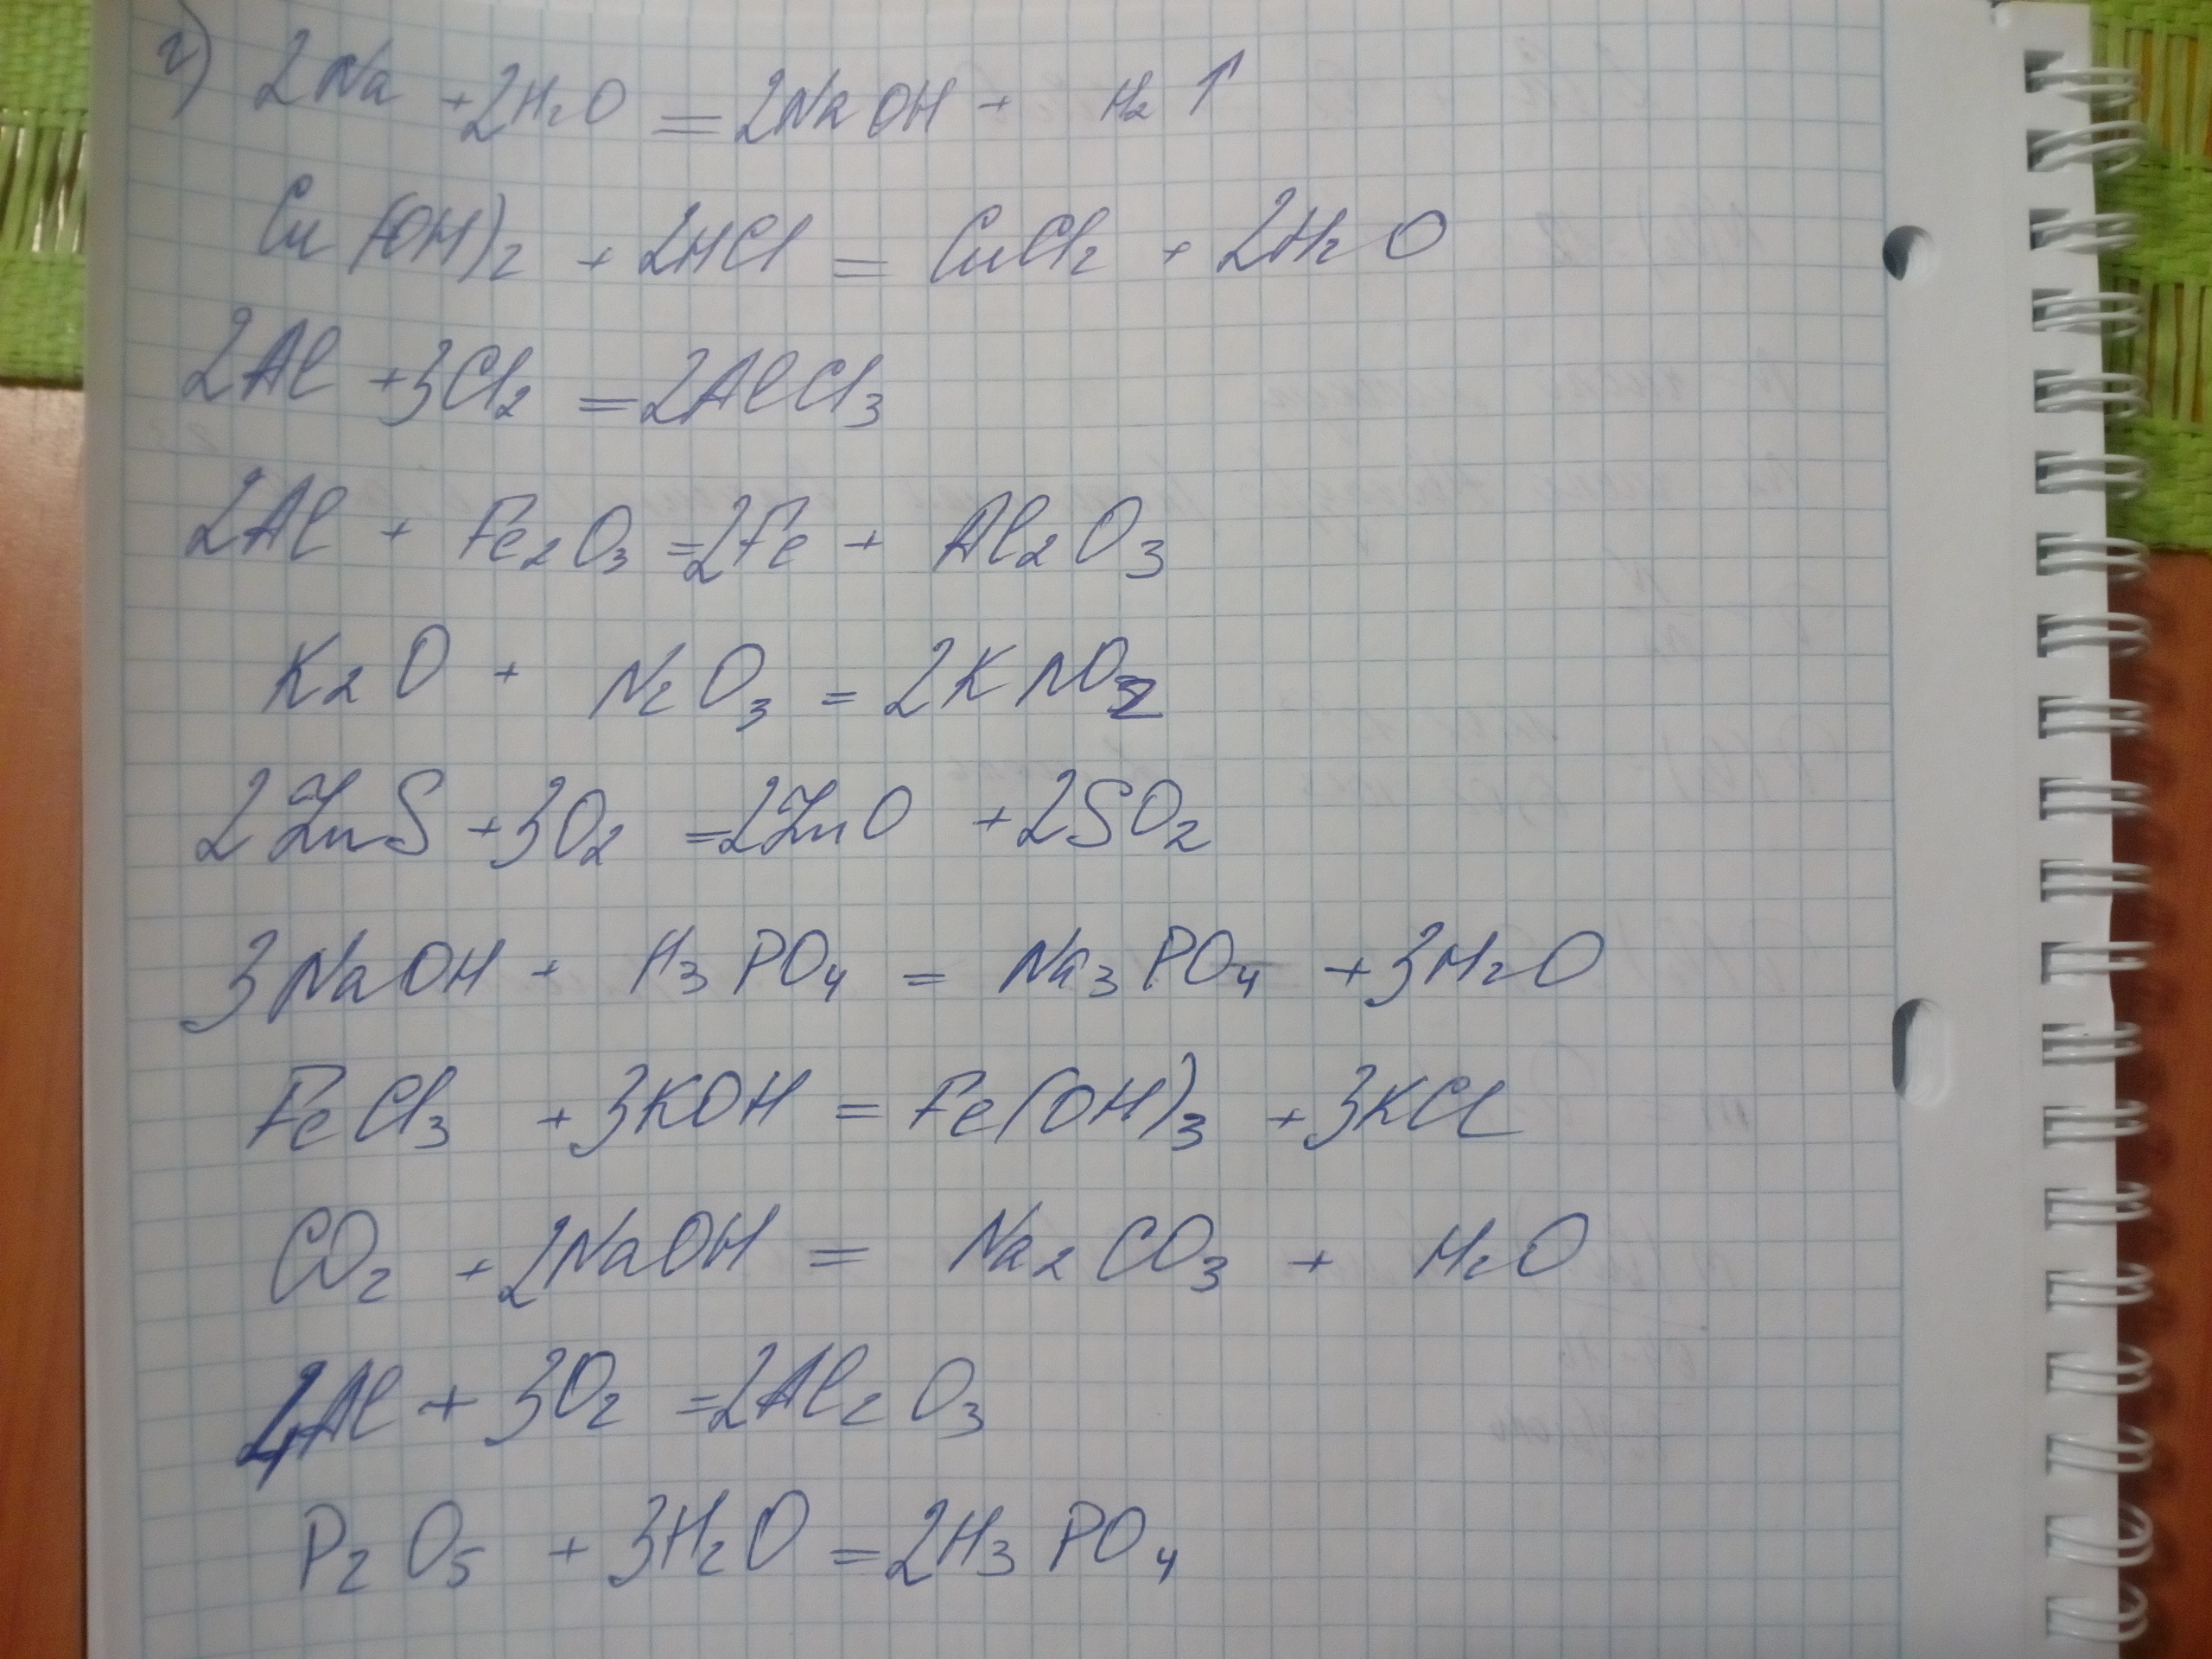 г) 2Na + 2H₂O = 2NaOH + H₂ ↑
Cu(OH)₂ + 2HCl = CuCl₂ + 2H₂O
2Al + 3Cl₂ = 2AlCl₃
2Al + Fe₂O₃ = 2Fe + Al₂O₃
K₂O + N₂O₃ = 2KNO₂
2ZnS + 3O₂ = 2ZnO + 2SO₂
3NaOH + H₃PO₄ = Na₃PO₄ + 3H₂O
FeCl₃ + 3KOH = Fe(OH)₃ + 3KCl
CO₂ + 2NaOH = Na₂CO₃ + H₂O
4Al + 3O₂ = 2Al₂O₃
P₂O₅ + 3H₂O = 2H₃PO₄